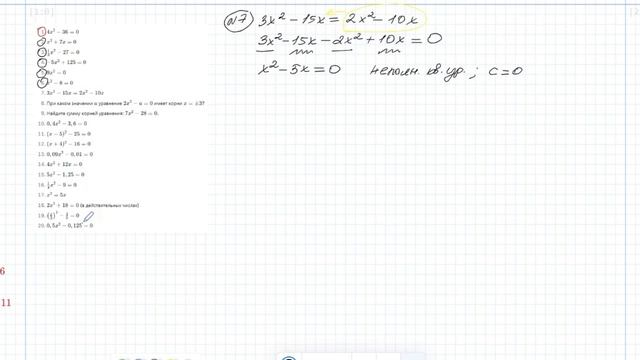 1. 4x² − 36 = 0
x² + 7x = 0
x² − 27 = 0
−5x² + 125 = 0
x² = 0
− 8 = 0
7. 3x² − 15x = 2x² − 10x
8. При каком значении a уравнение 2x² − a = 0 имеет корни x = ±3?
9. Найдите сумму корней уравнения: 7x² − 28 = 0.
10. 0,4x² − 3,6 = 0
11. (x − 5)² − 25 = 0
12. (x + 4)² − 16 = 0
13. 0,09x² − 0,01 = 0
14. 4x² + 12x = 0
15. 5x² − 1,25 = 0
16. x² − 9 = 0
17. x² = 5x
18. 2x² + 18 = 0 (в действительных числах)
19.
20. 0,5x² − 0,125 = 0
№7 3x² − 15x = 2x² − 10x
3x² − 15x − 2x² + 10x = 0
x² − 5x = 0 неполн. кв. ур.; c = 0
6
11